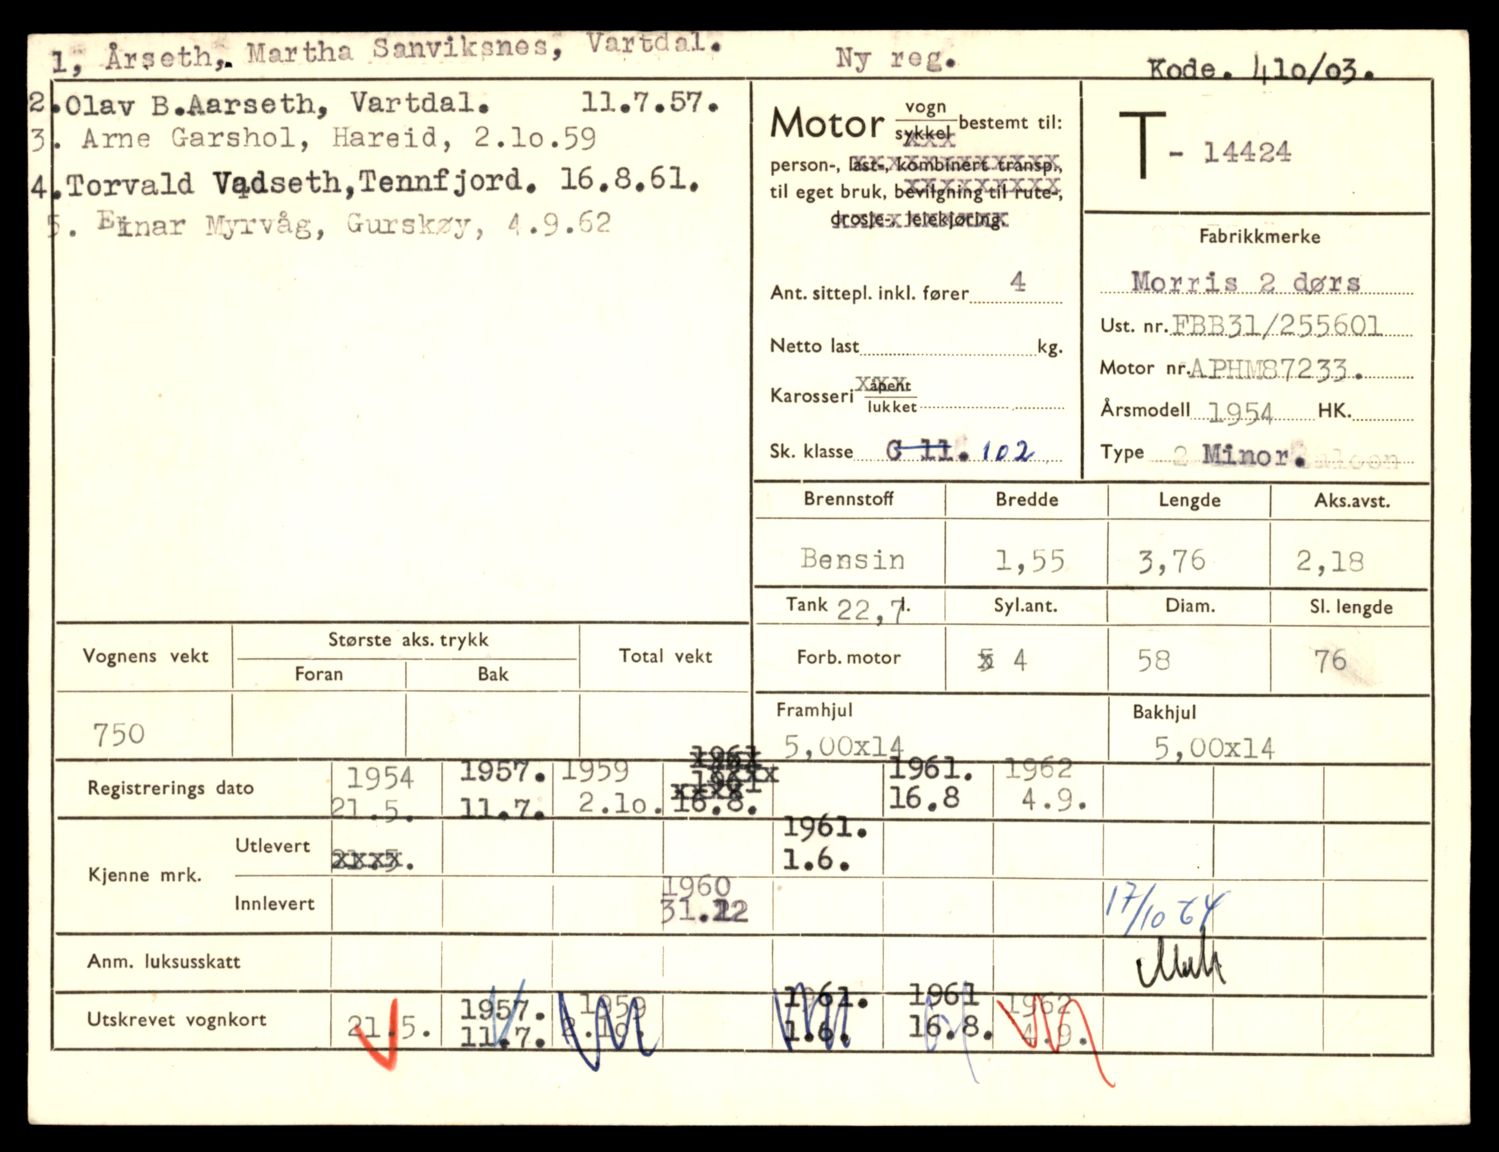 1, Årseth, Martha Sanviksnes, Vartdal.
Ny reg.
Kode. 410/03.
2. Olav B. Aarseth, Vartdal. 11.7.57.
3. Arne Garshol, Hareid, 2.10.59
4. Torvald Vadseth, Tennfjord. 16.8.61.
5. Einar Myrvåg, Gurskøy, 4.9.62
Motor vogn sykkel bestemt til:
person-, last-, kombinert transp.,
til eget bruk, bevilgning til rute-,
drosje-, leiekjøring.
Ant. sittepl. inkl. fører 4
Netto last kg.
Karosseri åpent lukket
Sk. klasse C 11. 102
T - 14424
Fabrikkmerke
Morris 2 dørs
Ust. nr. FBB31/255601
Motor nr. APHM87233.
Årsmodell 1954 HK.
Type 2 Minor.
Brennstoff Bredde Lengde Aks.avst.
Bensin 1,55 3,76 2,18
Tank 22,7 l. Syl.ant. Diam. Sl. lengde
Forb. motor 4 58 76
Framhjul Bakhjul
5,00x14 5,00x14
Vognens vekt Største aks. trykk Total vekt
Foran Bak
750
Registrerings dato 1954 1957. 1959 1961 1961. 1962
21.5. 11.7. 2.10. 16.8. 16.8 4.9.
Kjenne mrk.
Utlevert 21.5. 1961. 1.6.
Innlevert 1960 31.12 17/10 64
Anm. luksusskatt
Utskrevet vognkort 1957. 1959 1961. 1961 1962
21.5. 11.7. 2.10. 1.6. 16.8. 4.9.